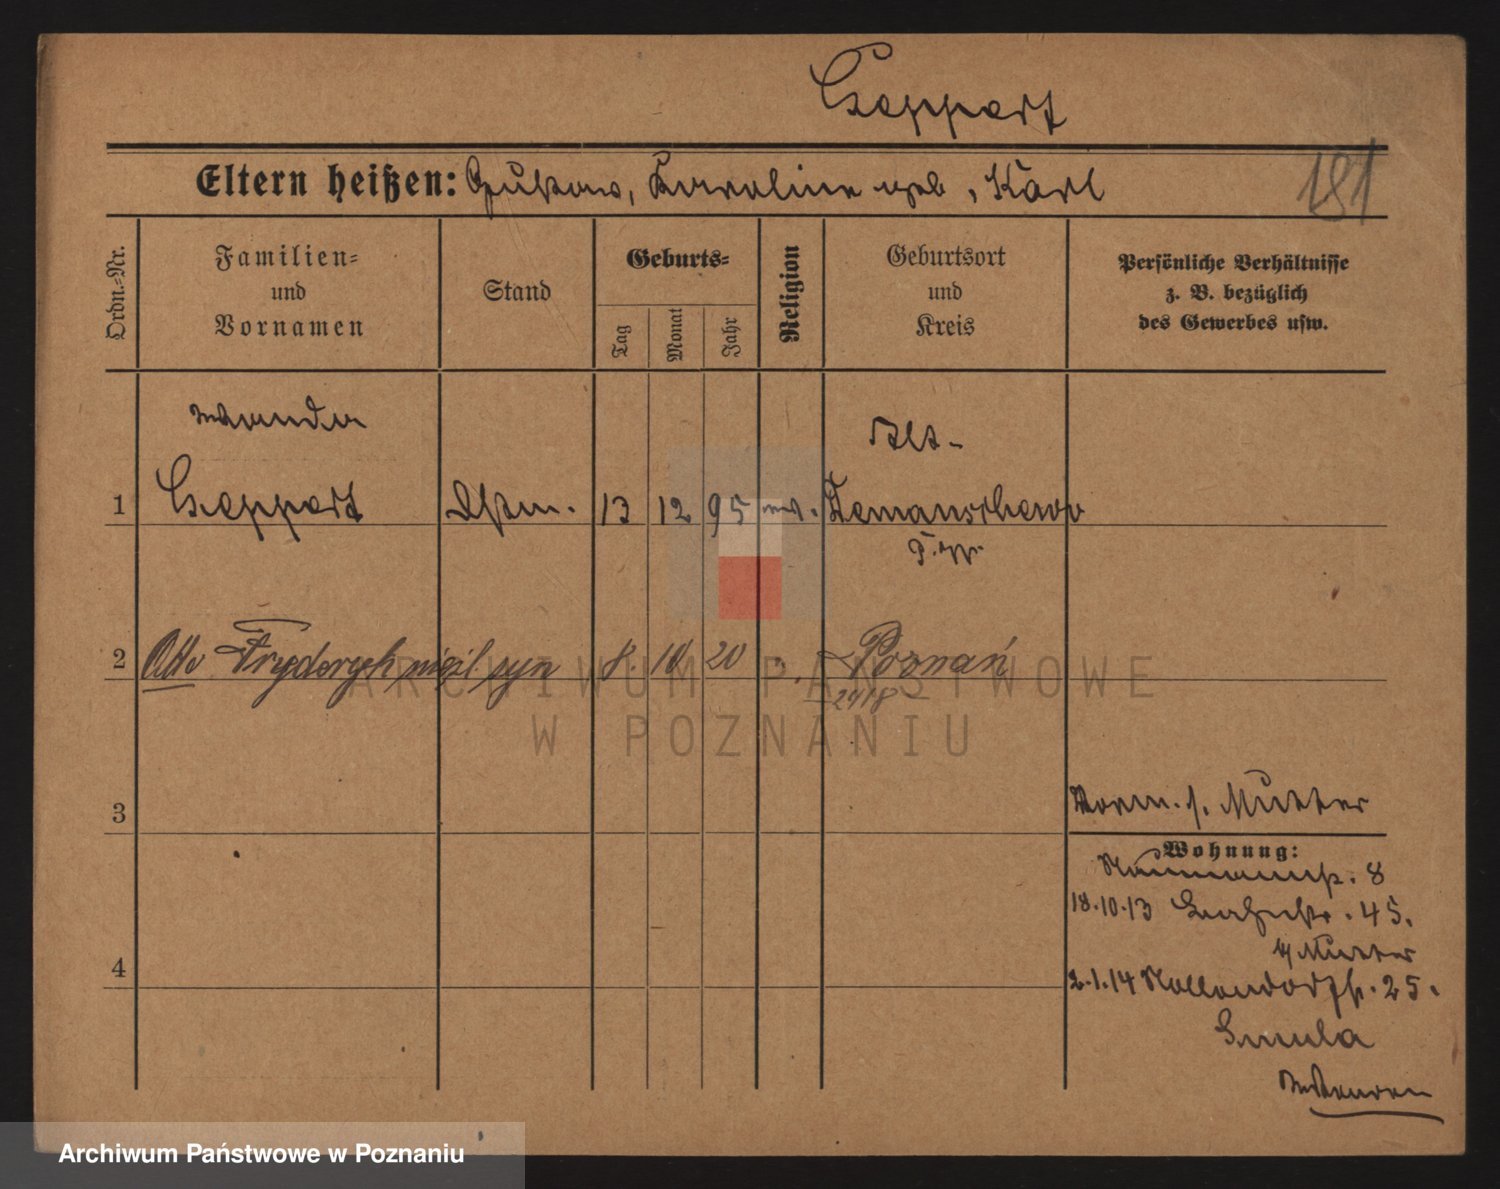 Geppert
Eltern heißen: Gustav, Karoline geb. Karl
181
Ordn.-Nr.
Familien-
und
Vornamen
Stand
Geburts-
Tag
Monat
Jahr
Religion
Geburtsort
und
Kreis
Persönliche Verhältnisse
z. B. bezüglich
des Gewerbes usw.
Wanda
Alt-
1 Geppert 13 12 95 ev. Demanschewo
2 Otto Fryderyk syn 8. 10 20 Poznań
2418
3
Vorm. s. Mutter
Wohnung:
Naumannstr. 8
18.10.13 45.
b/ Mutter
4
2.1.14 Nollendorfstr. 25.
ARCHIWUM PAŃSTWOWE
W POZNANIU
Archiwum Państwowe w Poznaniu